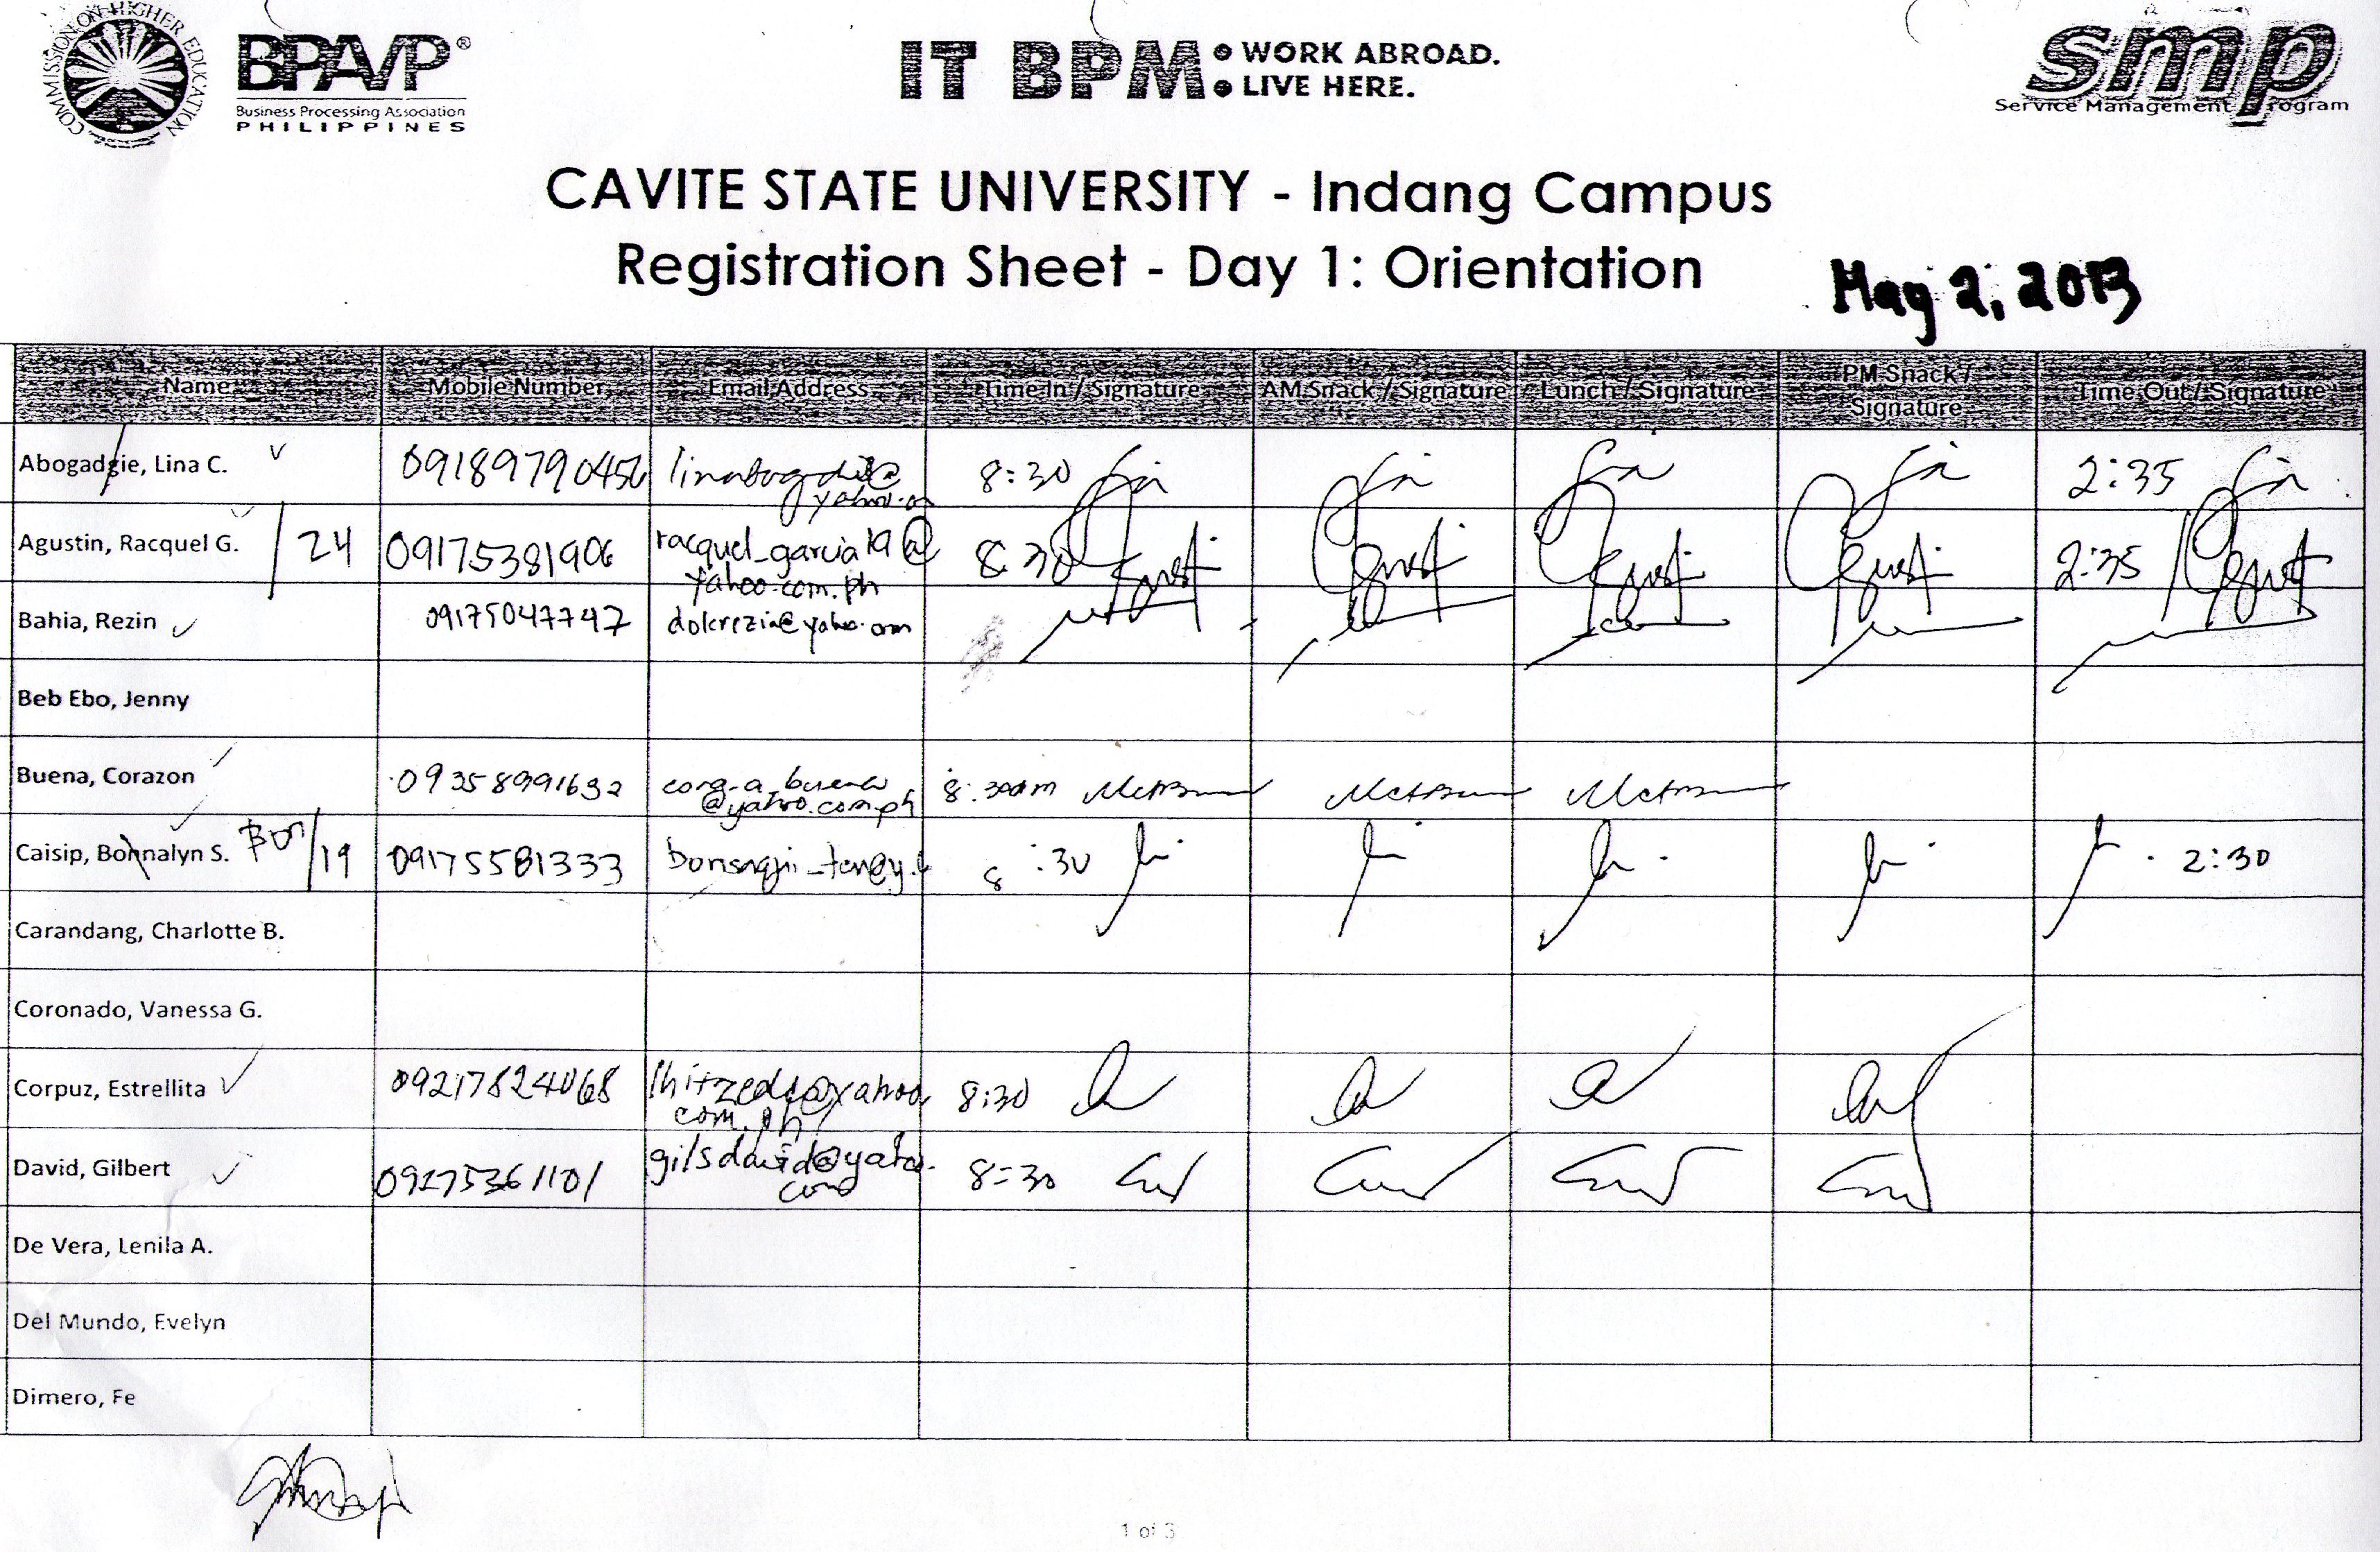 COMMISSION ON HIGHER EDUCATION
BPA/P®
Business Processing Association
PHILIPPINES
IT BPM
WORK ABROAD.
LIVE HERE.
smp
Service Management Program
CAVITE STATE UNIVERSITY - Indang Campus
Registration Sheet - Day 1: Orientation
May 2, 2013
Name Mobile Number Email Address Time In / Signature AM Snack / Signature Lunch / Signature PM Snack / Signature Time Out / Signature
Abogadgie, Lina C. 09189790456 8:30 2:35
Agustin, Racquel G. /24 09175381906 racquel_garcia19@yahoo.com.ph 8:30 2:35
Bahia, Rezin 09175047747
Beb Ebo, Jenny
Buena, Corazon 09358991632 @yahoo.com.ph 8:30am
Caisip, Bonnalyn S. Bon /19 09175581333 8:30 2:30
Carandang, Charlotte B.
Coronado, Vanessa G.
Corpuz, Estrellita 09217824068 8:30
David, Gilbert 09275361101 gilsdavid@yahoo.com 8:30
De Vera, Lenila A.
Del Mundo, Evelyn
Dimero, Fe
1 of 3